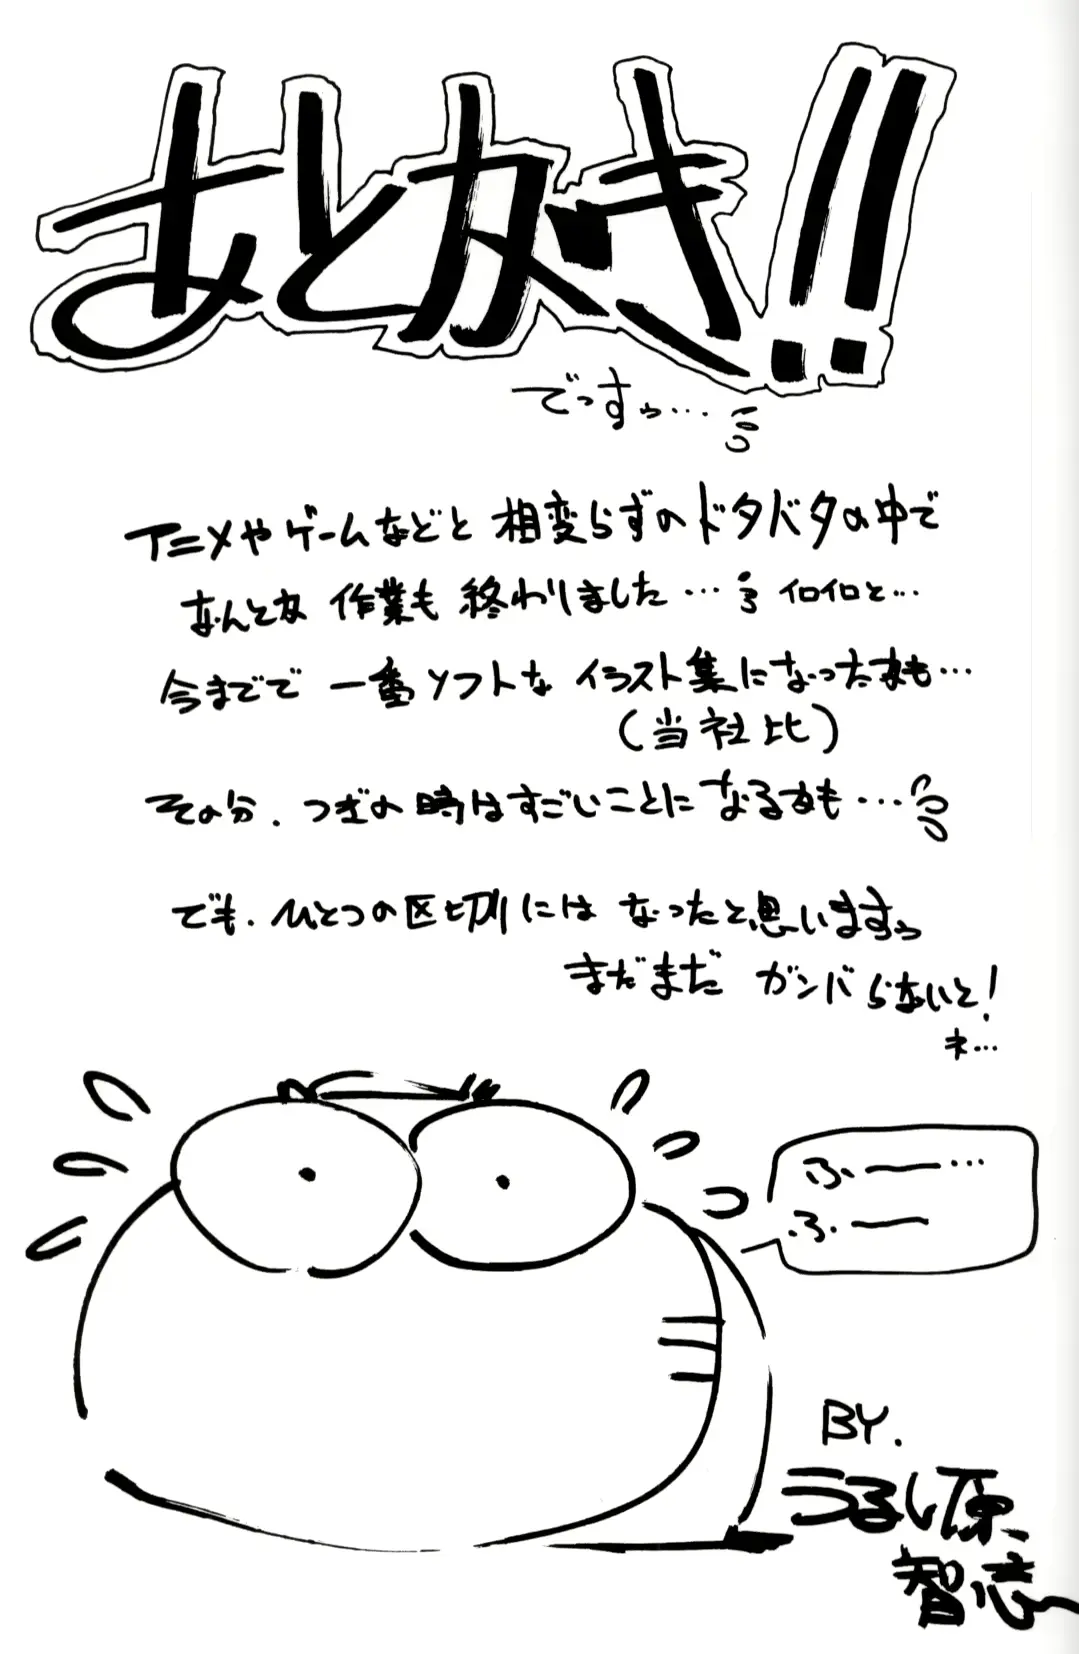 あとがき!!
でっすぅ…
アニメやゲームなどと 相変らずのドタバタの中で
なんとか 作業も 終わりました… イロイロと…
今までで 一番ソフトな イラスト集になったかも…
(当社比)
その分、つぎの時はすごいことに なるかも…
でも、ひとつの区切りには なったと思いますぅ
まだまだ ガンバらないと!
ネ…
ふー…
ふー
BY.
うるし原
智志